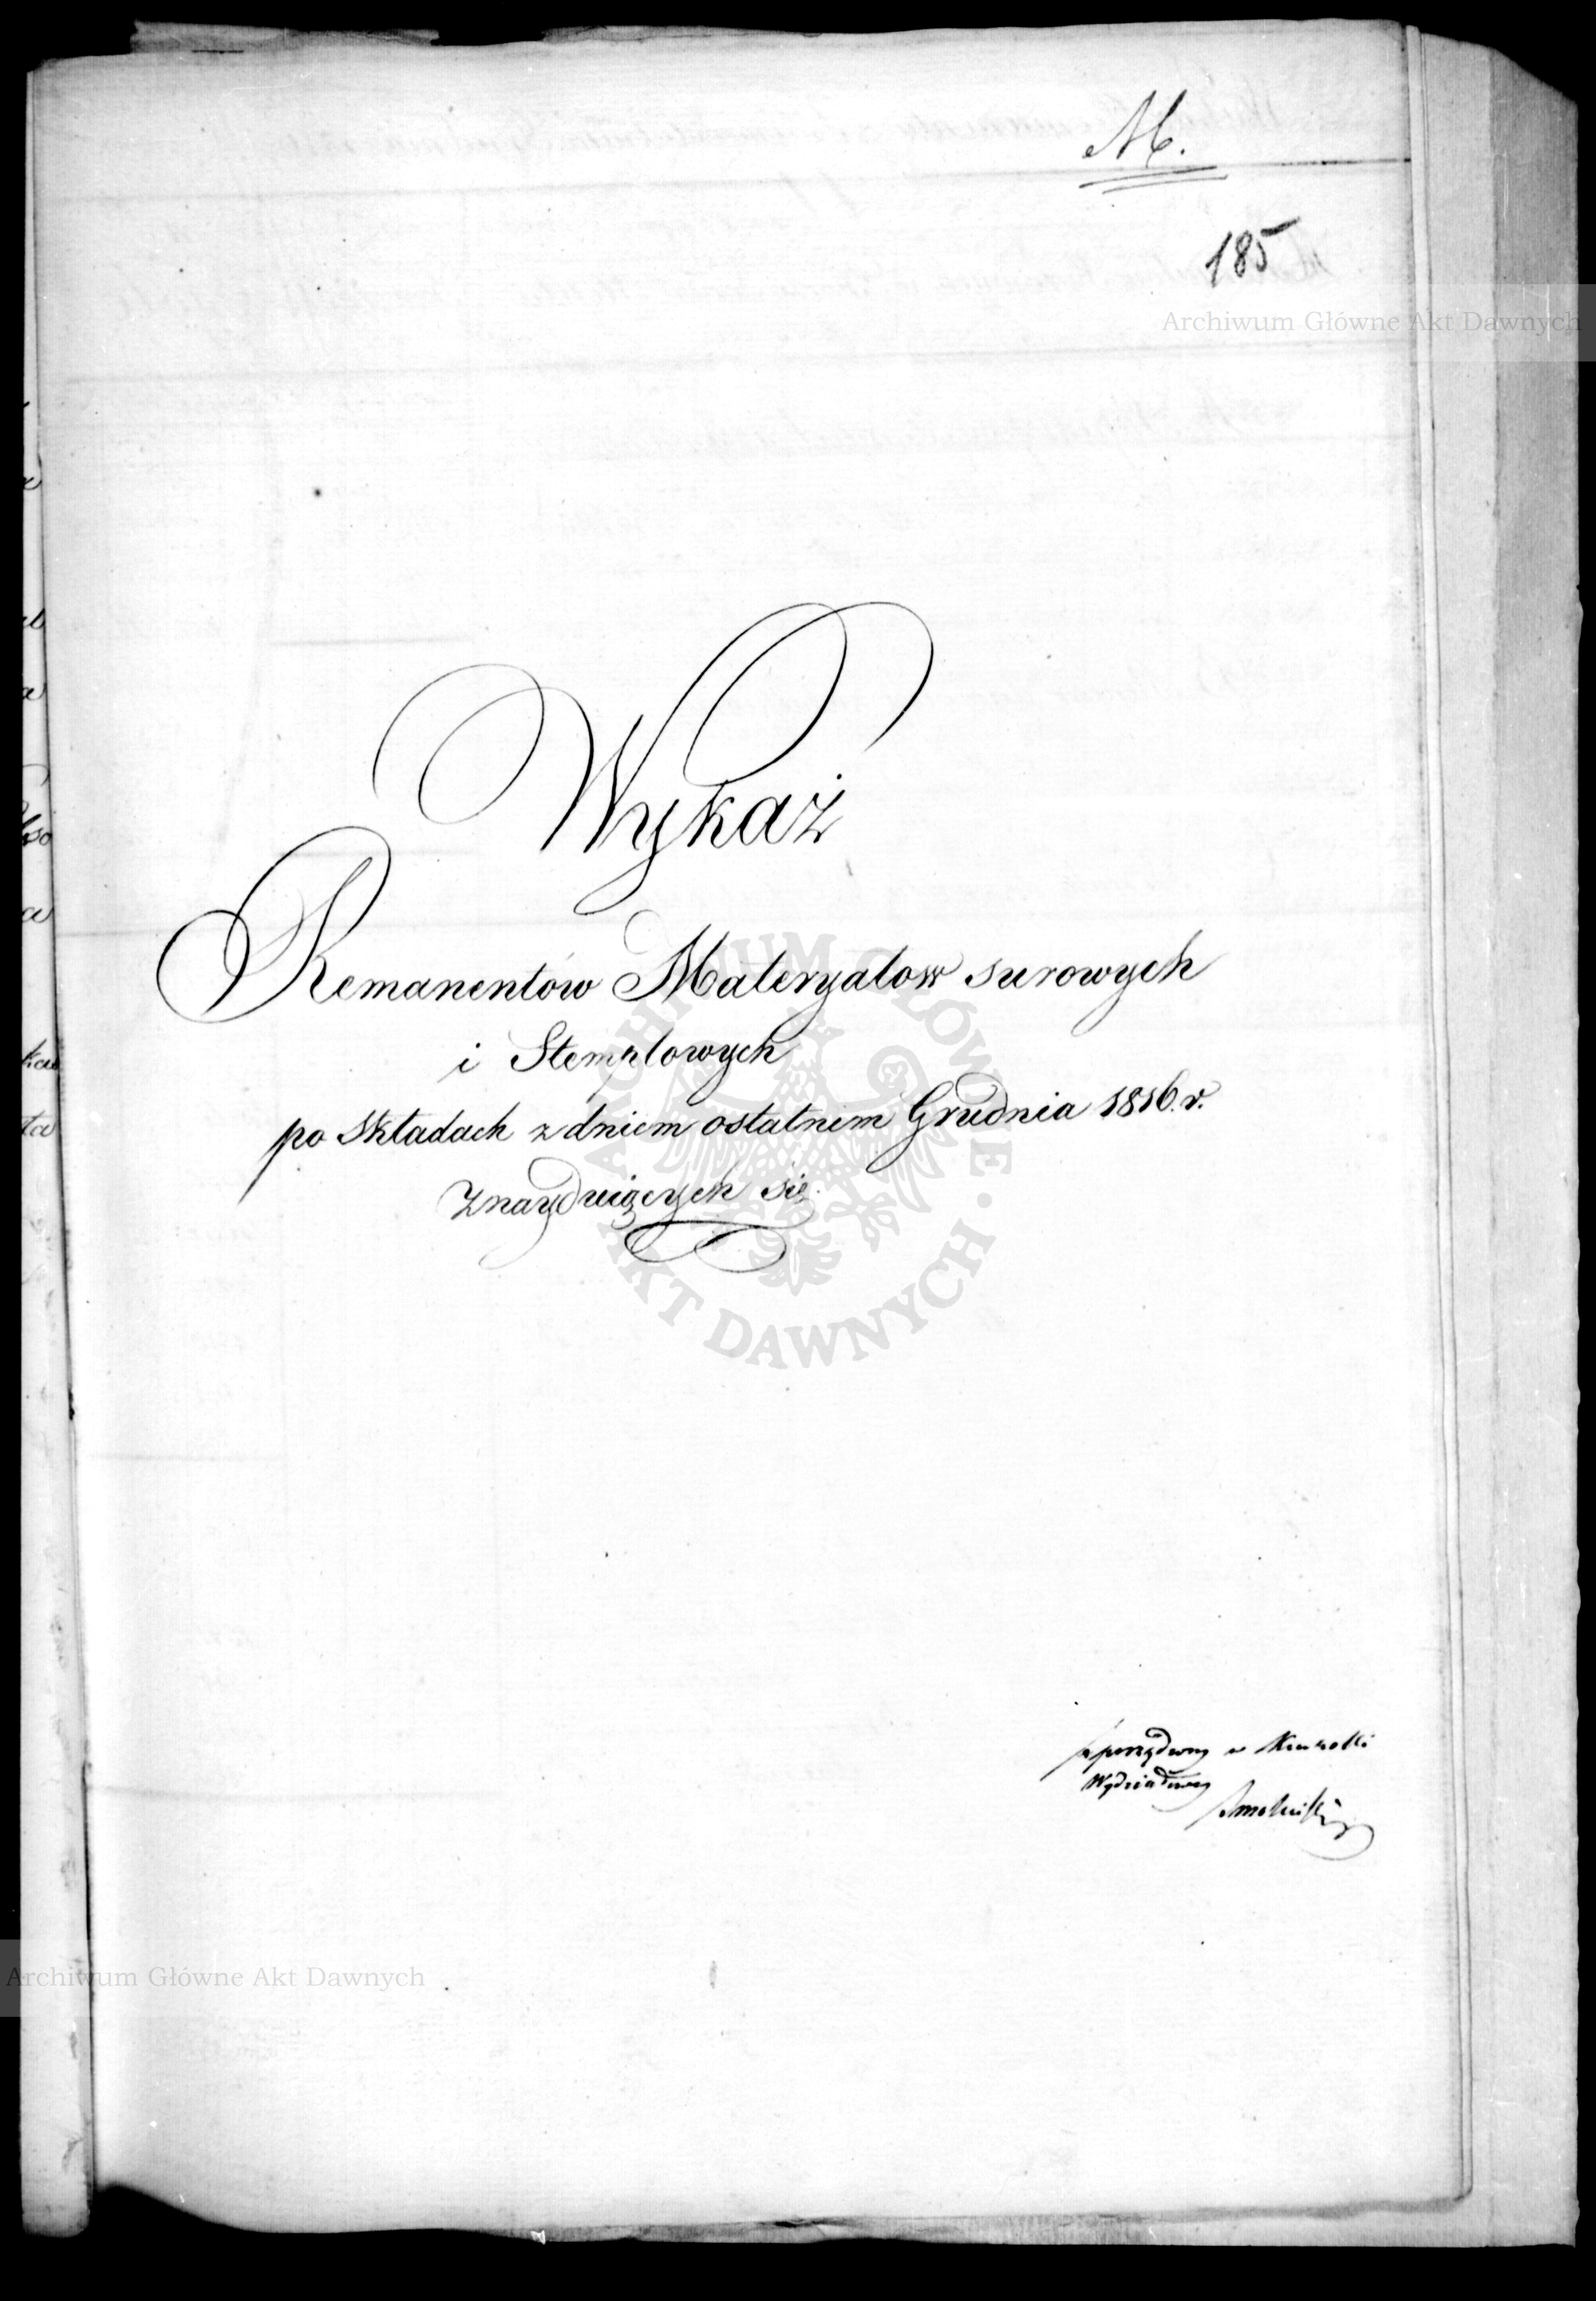 M.
185
Archiwum Główne Akt Dawnych
Wykaż
Remanentów Materyałow surowych
i Stemplowych
po Składach z dniem ostatnim Grudnia 1816. r.
Znayduiących się.
ARCHIWUM GŁÓWNE · AKT DAWNYCH ·
w
Archiwum Główne Akt Dawnych